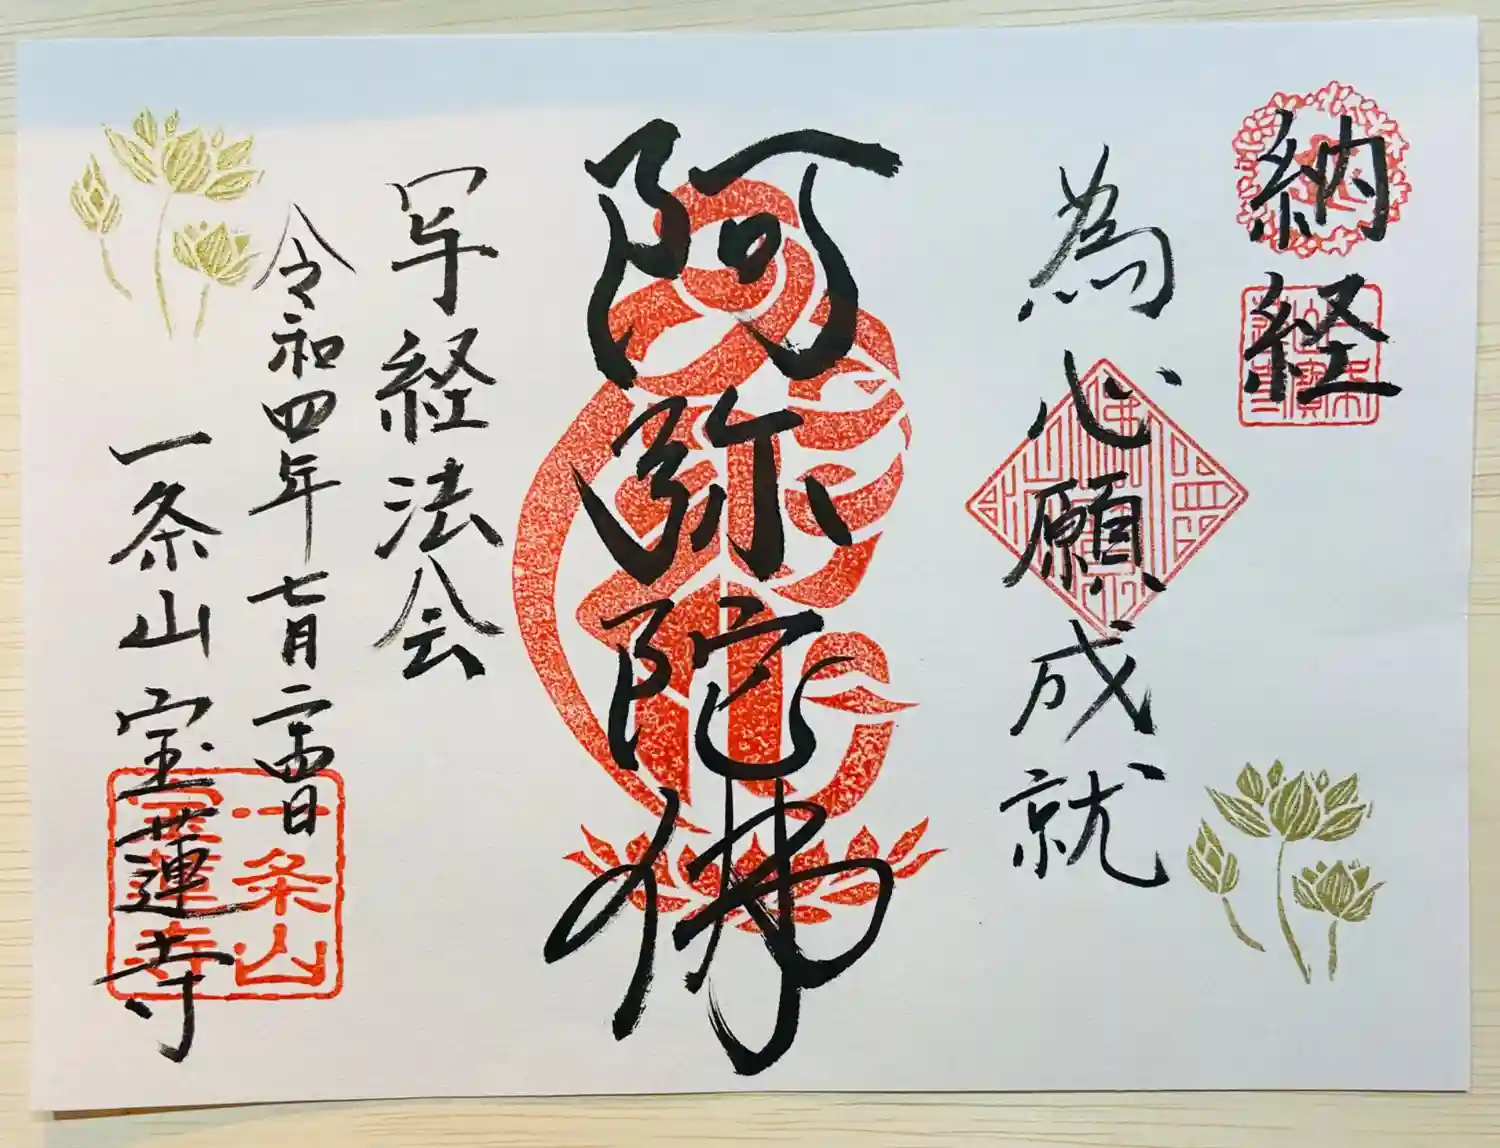 納経
為心願成就
阿弥陀佛
写経法会
令和四年七月二十四日
一条山宝蓮寺
一条山
宝蓮寺